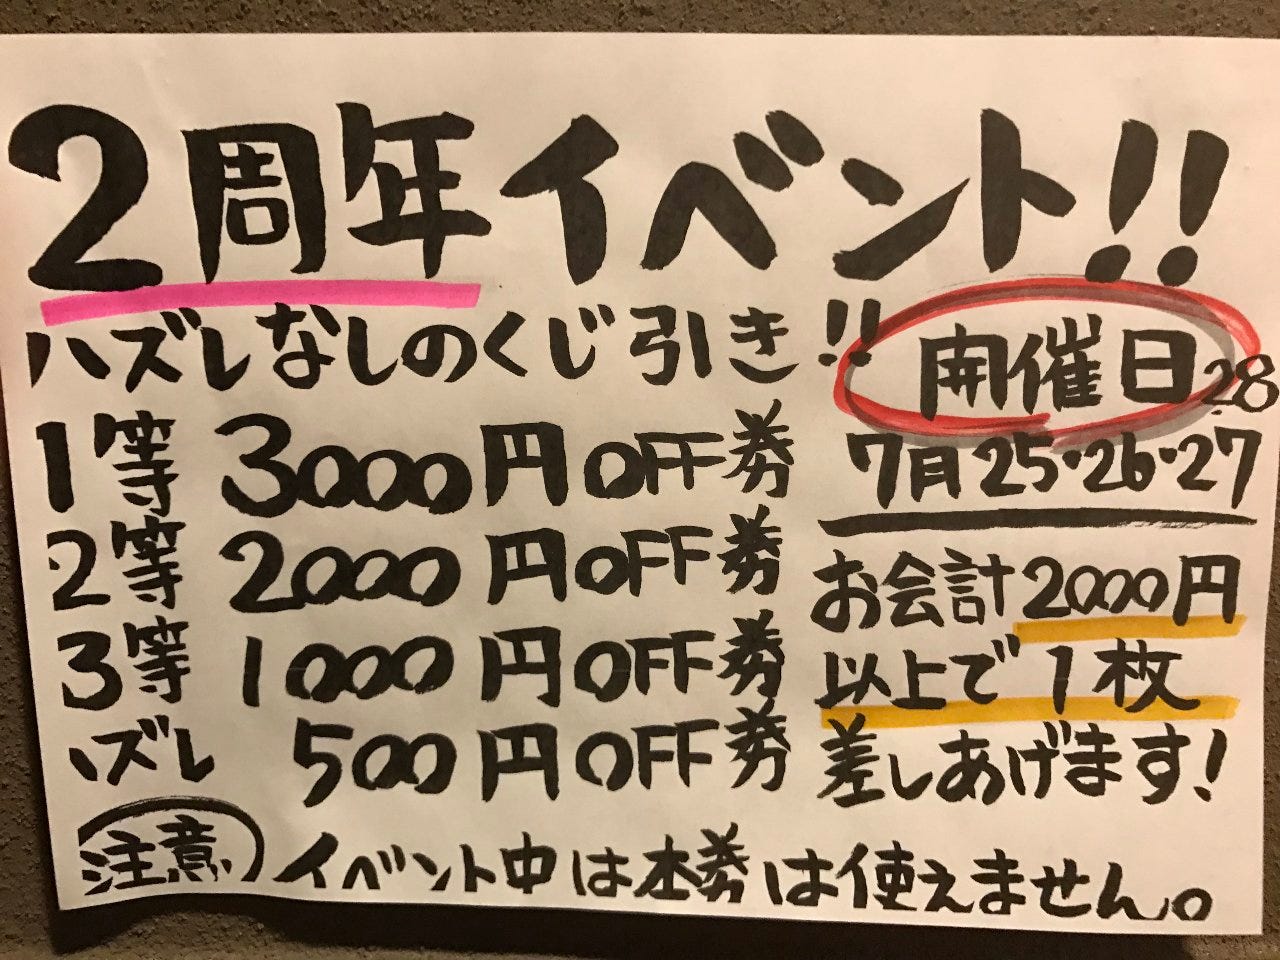 2周年イベント!!
ハズレなしのくじ引き!!
1等 3000円OFF券
2等 2000円OFF券
3等 1000円OFF券
ハズレ 500円OFF券
開催日
28
7月25・26・27
お会計2000円
以上で1枚
差しあげます!
注意 イベント中は本券は使えません。